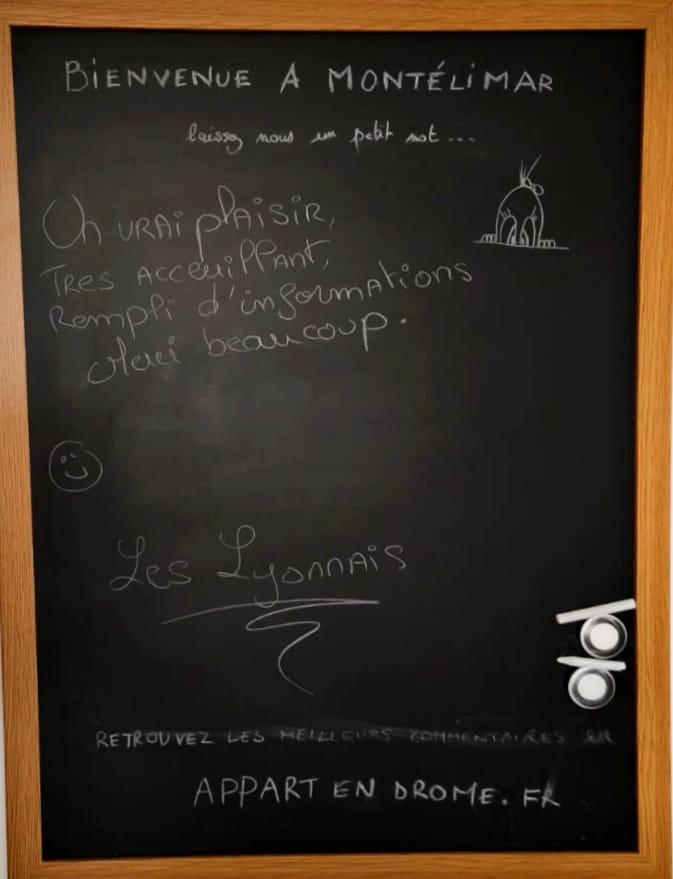 BIENVENUE A MONTÉLIMAR
laissez nous un petit mot...
Un VRAI plAISIR,
TRES ACCEUILLANT,
Rempli d'informAtions
Merci beaucoup.
Les Lyonnais
RETROUVEZ LES MEILLEURS COMMENTAIRES SUR
APPART EN DROME.FR